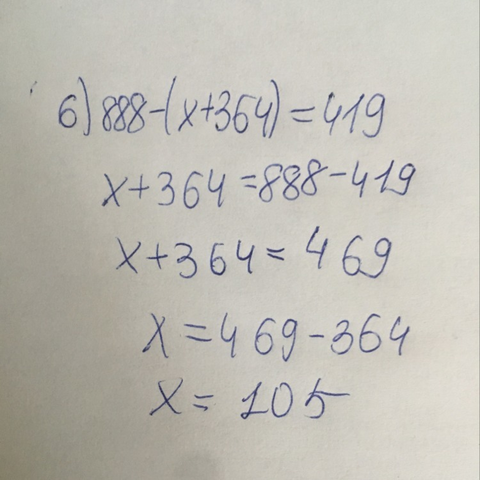 б) 888-(x+364)=419
x+364=888-419
x+364=469
x=469-364
x=105